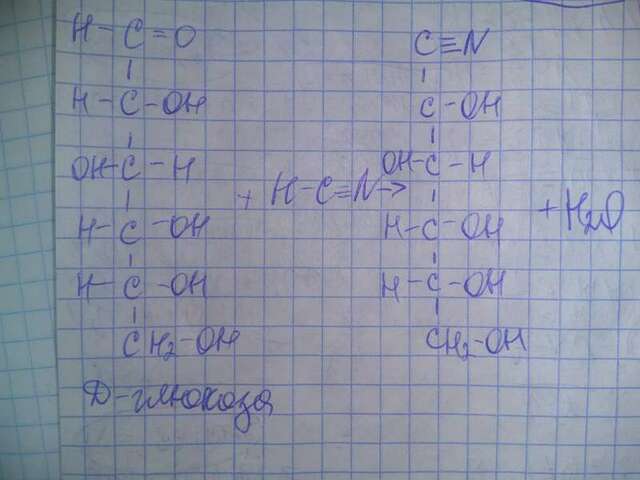 H-C=O
H-C-OH
OH-C-H
H-C-OH
H-C-OH
CH₂-OH
+ H-C≡N→
C≡N
C-OH
OH-C-H
H-C-OH
H-C-OH
CH₂-OH
+H₂O
Д-глюкоза